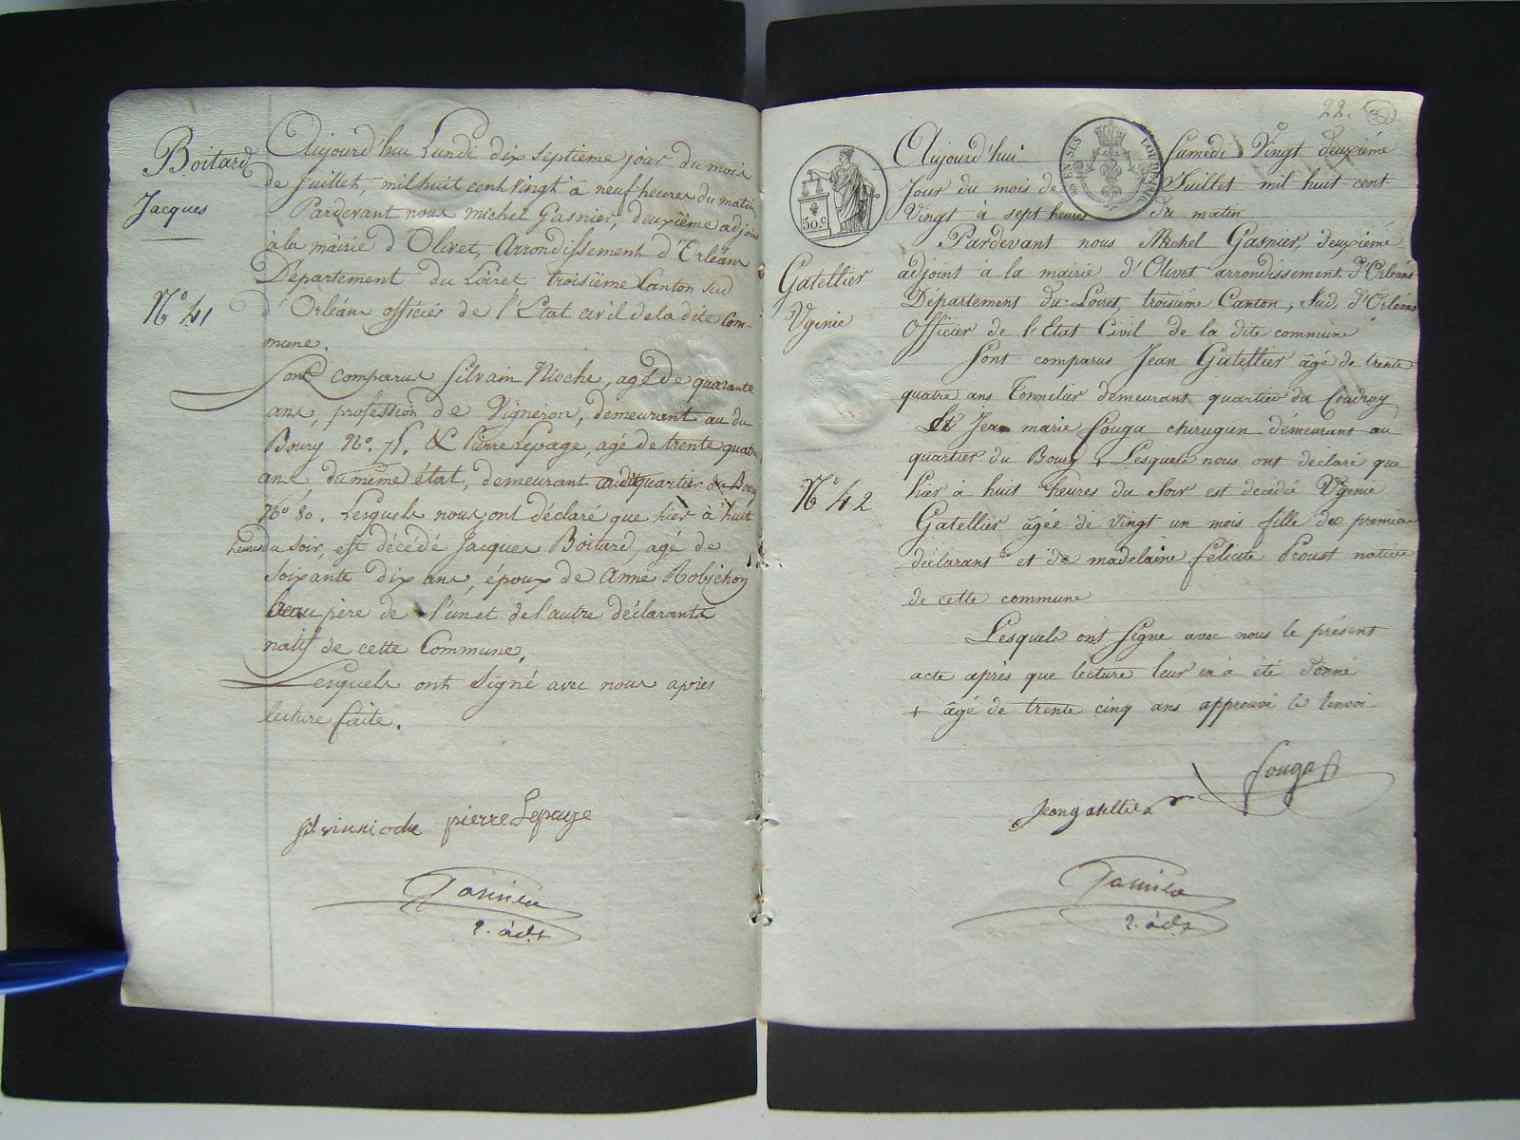 Boitard
Jacques
N° 41
Aujourd'hui Lundi dix septieme jour du mois
de Juillet, mil huit cent vingt à neuf heures du matin
Pardevant nous Michel Gasnier, deuxième adjoint
à la mairie d'Olivet, Arrondissement d'Orléans
Département du Loiret troisième Canton sud
d'Orléans officier de l'Etat civil de la dite Com-
mune.
Sont comparus Silvain Nioche, agé de quarante
ans, profession de Vigneron, demeurant au du
Bourg N°. 71. & Pierre Lepage, agé de trente quatre
ans, du même état, demeurant audit quartier du Bourg
N° 80. Lesquels nous ont déclaré que hier à huit
heures du soir, est décédé Jacques Boitard, agé de
soixante dix ans, époux de Anne Robichon
beau père de l'un et de l'autre déclarants
natif de cette Commune.
Lesquels ont signé avec nous après
lecture faite.
silvin nioche pierre Lepage
Gasnier
2. adjt
22.
30.c
Gatellier
Ugenie
N° 42
Aujourd'hui Samedi Vingt deuxième
Jour du mois de Juillet mil huit cent
Vingt à sept heures du matin
Pardevant nous Michel Gasnier, deuxième
adjoint à la mairie d'Olivet arrondissement d'Orléans
Département du Loiret, troisième Canton, Sud, d'Orléans
Officier de l'Etat Civil de la dite commune
Sont comparus Jean Gatellier âgé de trente
quatre ans Tonnelier demeurant quartier du Coudray
Et Jean marie fouga chirugien demeurant au
quartier du Bourg + Lesquels nous ont declaré que
hier à huit heures du Soir est decédé Ugenie
Gatellier âgée de vingt un mois fille du premier
déclarant et de madelaine félicité Proust native
de cette commune
Lesquels ont signé avec nous le présent
acte après que lecture leur en à été donné
+ âgé de trente cinq ans approuvé le renvoi
fouga
Jean gatellier
Gasnier
2. adjt